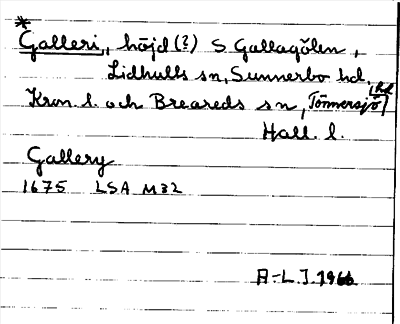 * Galleri, höjd (?) S. Gallagölen,
Lidhults sn, Sunnerbo hd,
Kron. l. och Breareds sn, Tönnersjö hd
Hall. l.
Gallery
1675 LSA M32
A-L J. 1966